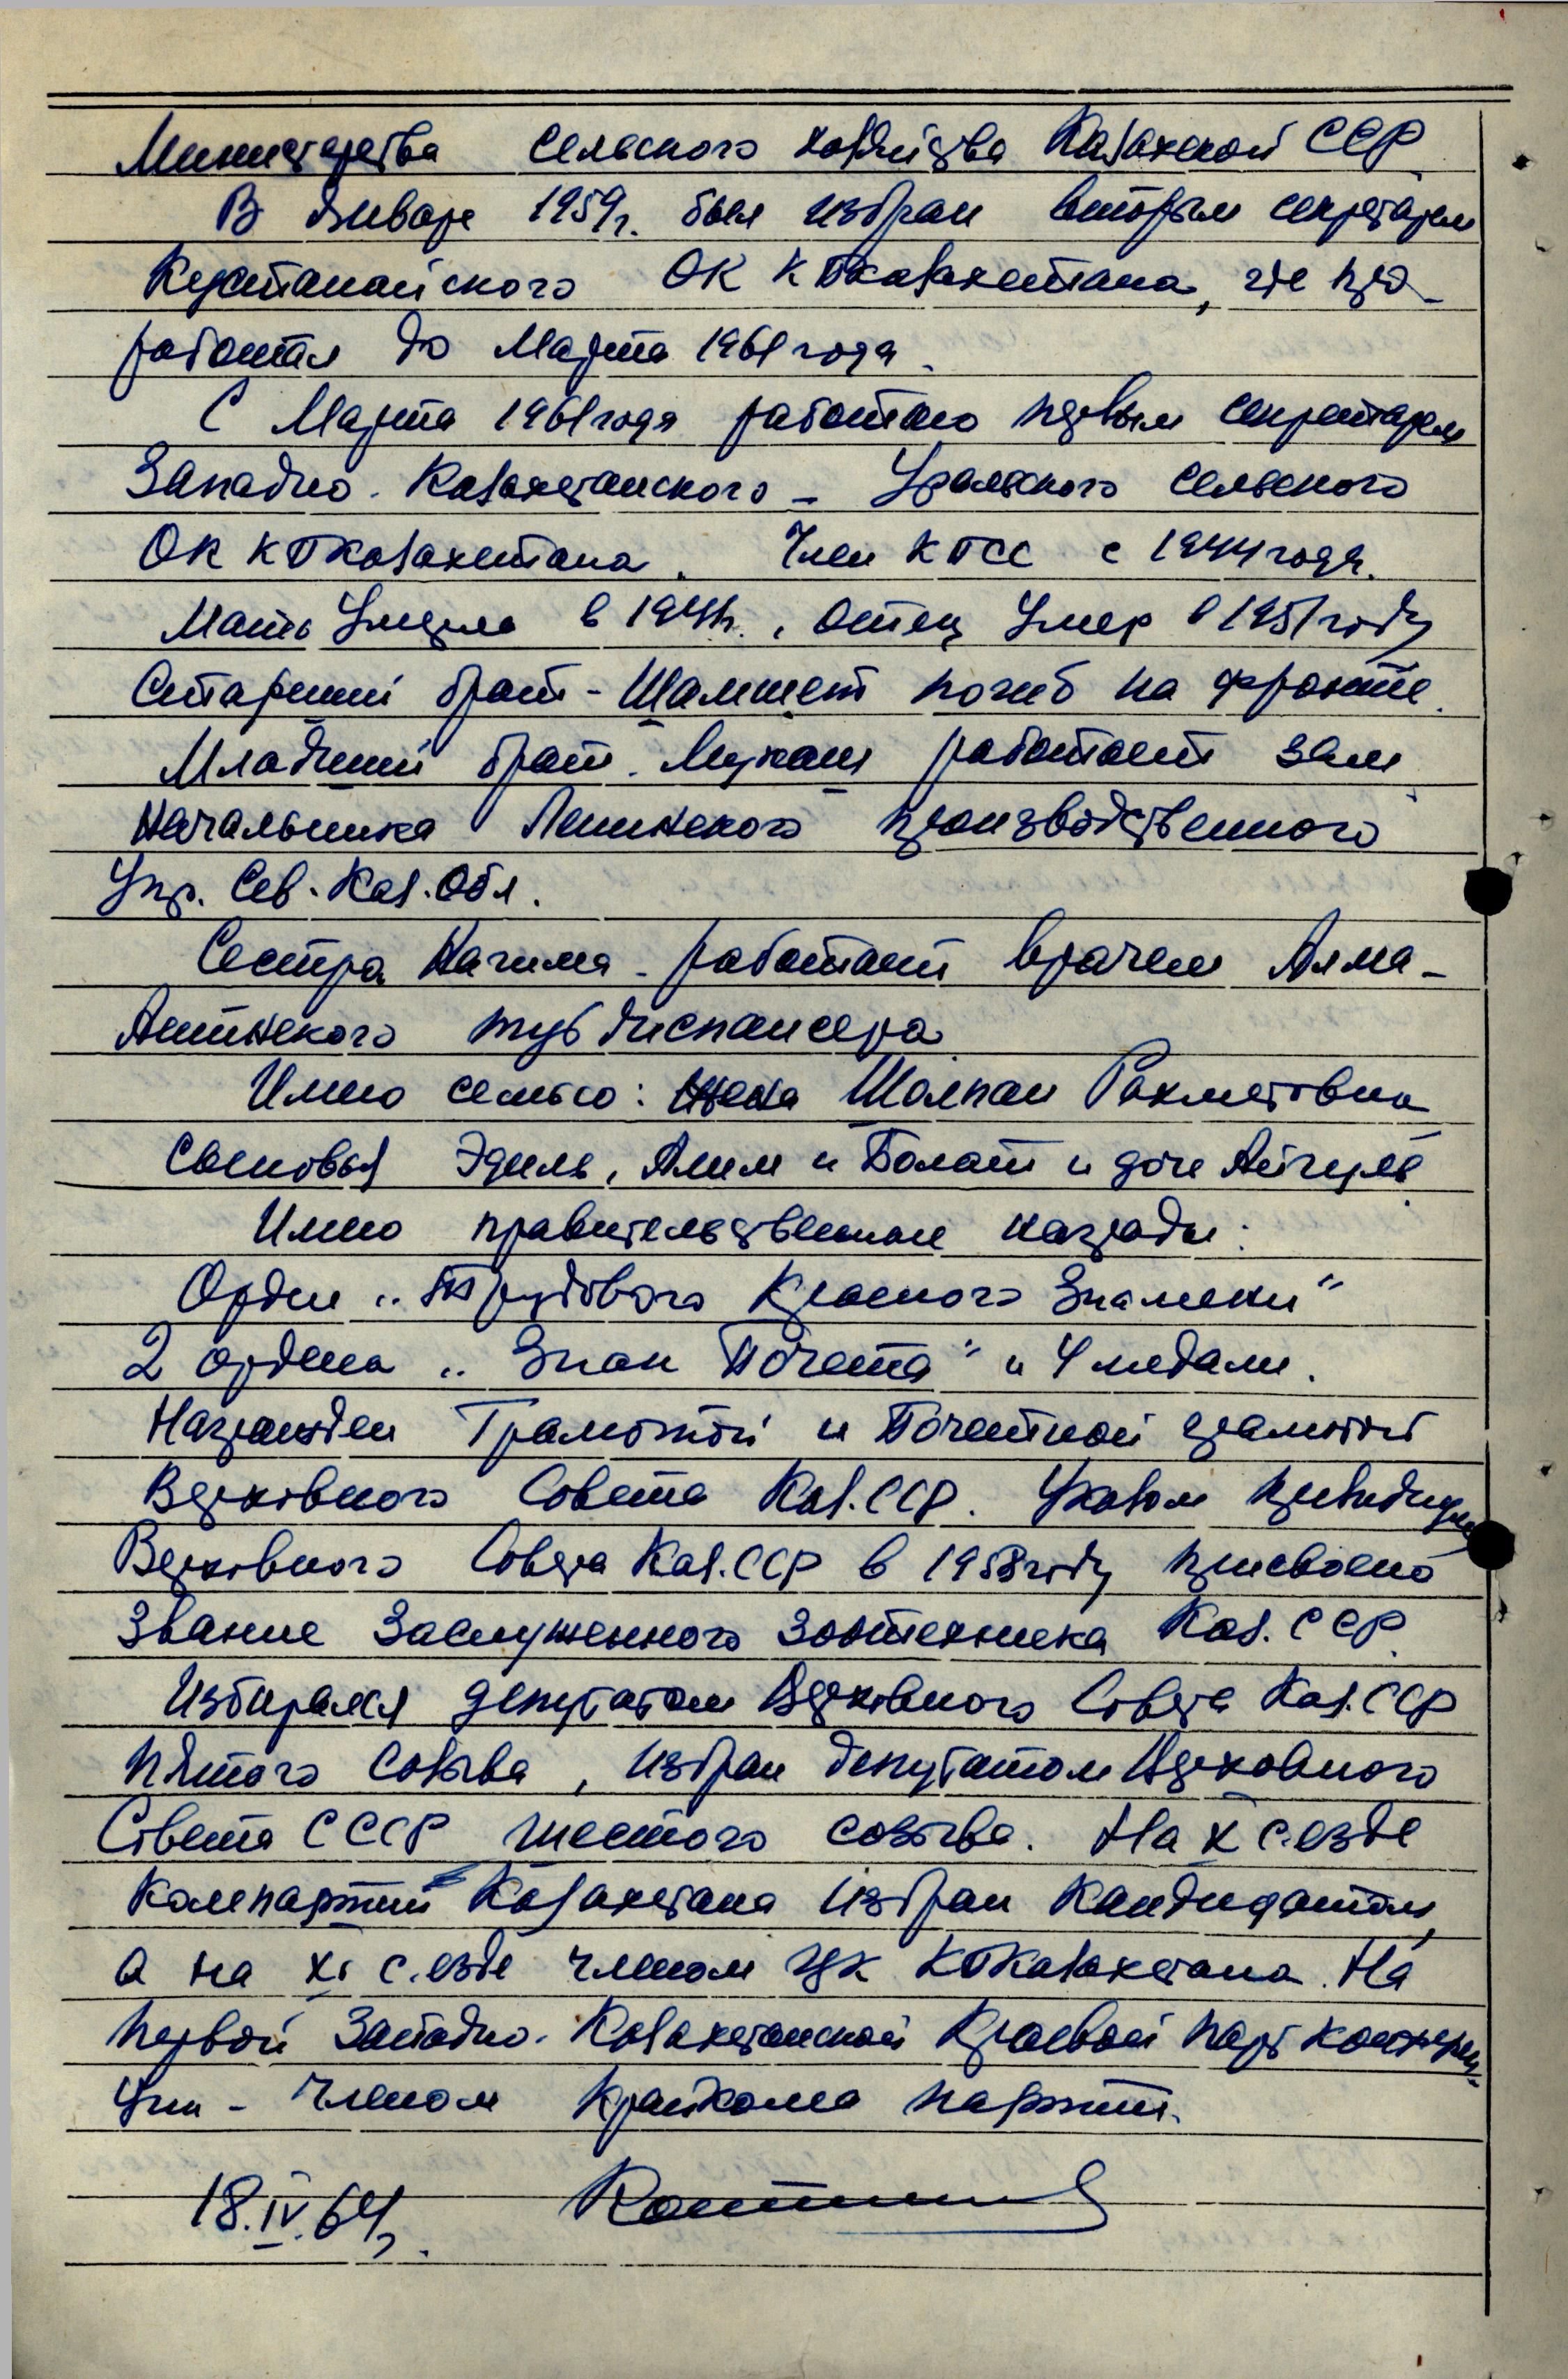 Министерства сельского хозяйства Казахской ССР.
В январе 1959г. был избран вторым секретарем
Кустанайского ОК КПКазахстана, где про-
работал до Марта 1961 года.
С Марта 1961 года работаю первым секретарем
Западно-Казахстанского - Уральского сельского
ОК КПКазахстана. Член КПСС с 1944 года.
Мать Умерла в 1941г., Отец Умер в 1951 году
Старший брат - Шамшет погиб на фронте.
Младший брат - Мукаш работает зам
Начальника Ленинского производственного
Упр. Сев-Каз.Обл.
Сестра Нагима - работает врачем Алма-
Атинского туб диспансера
Имею семью: Жена Шолпан Рахметовна
Сыновья Эдиль, Алим и Болат и дочь Айгуль
Имею правительственные награды:
Орден „Трудового Красного Знамени"
2 ордена „Знак Почета" и 4 медали.
Награжден Грамотой и Почетной грамотой
Верховного Совета Каз.ССР. Указом президиума
Верховного Совета Каз.ССР в 1958 году присвоено
Звание Заслуженного Зоотехника Каз.ССР.
Избирался депутатом Верховного Совета Каз.ССР
пятого созыва, избран депутатом Верховного
Совета СССР шестого созыва. На X с'езде
Компартии Казахстана избран Кандидатом,
а на XI с'езде членом ЦК КПКазахстана. На
первой Западно-Казахстанской Краевой парт конферен-
ции - членом Крайкома партии.
18.IV.64г.